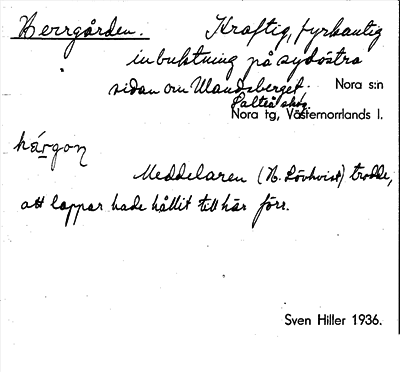 Herrgården. Kraftig, fyrkantig
inbuktning på sydöstra
sidan om Ulandsberget. Nora s:n
Salteå skog.
Nora tg, Västernorrlands l.
hárgon
Meddelaren (N. Lövkvist) trodde,
att lappar hade hållit till här förr.
Sven Hiller 1936.